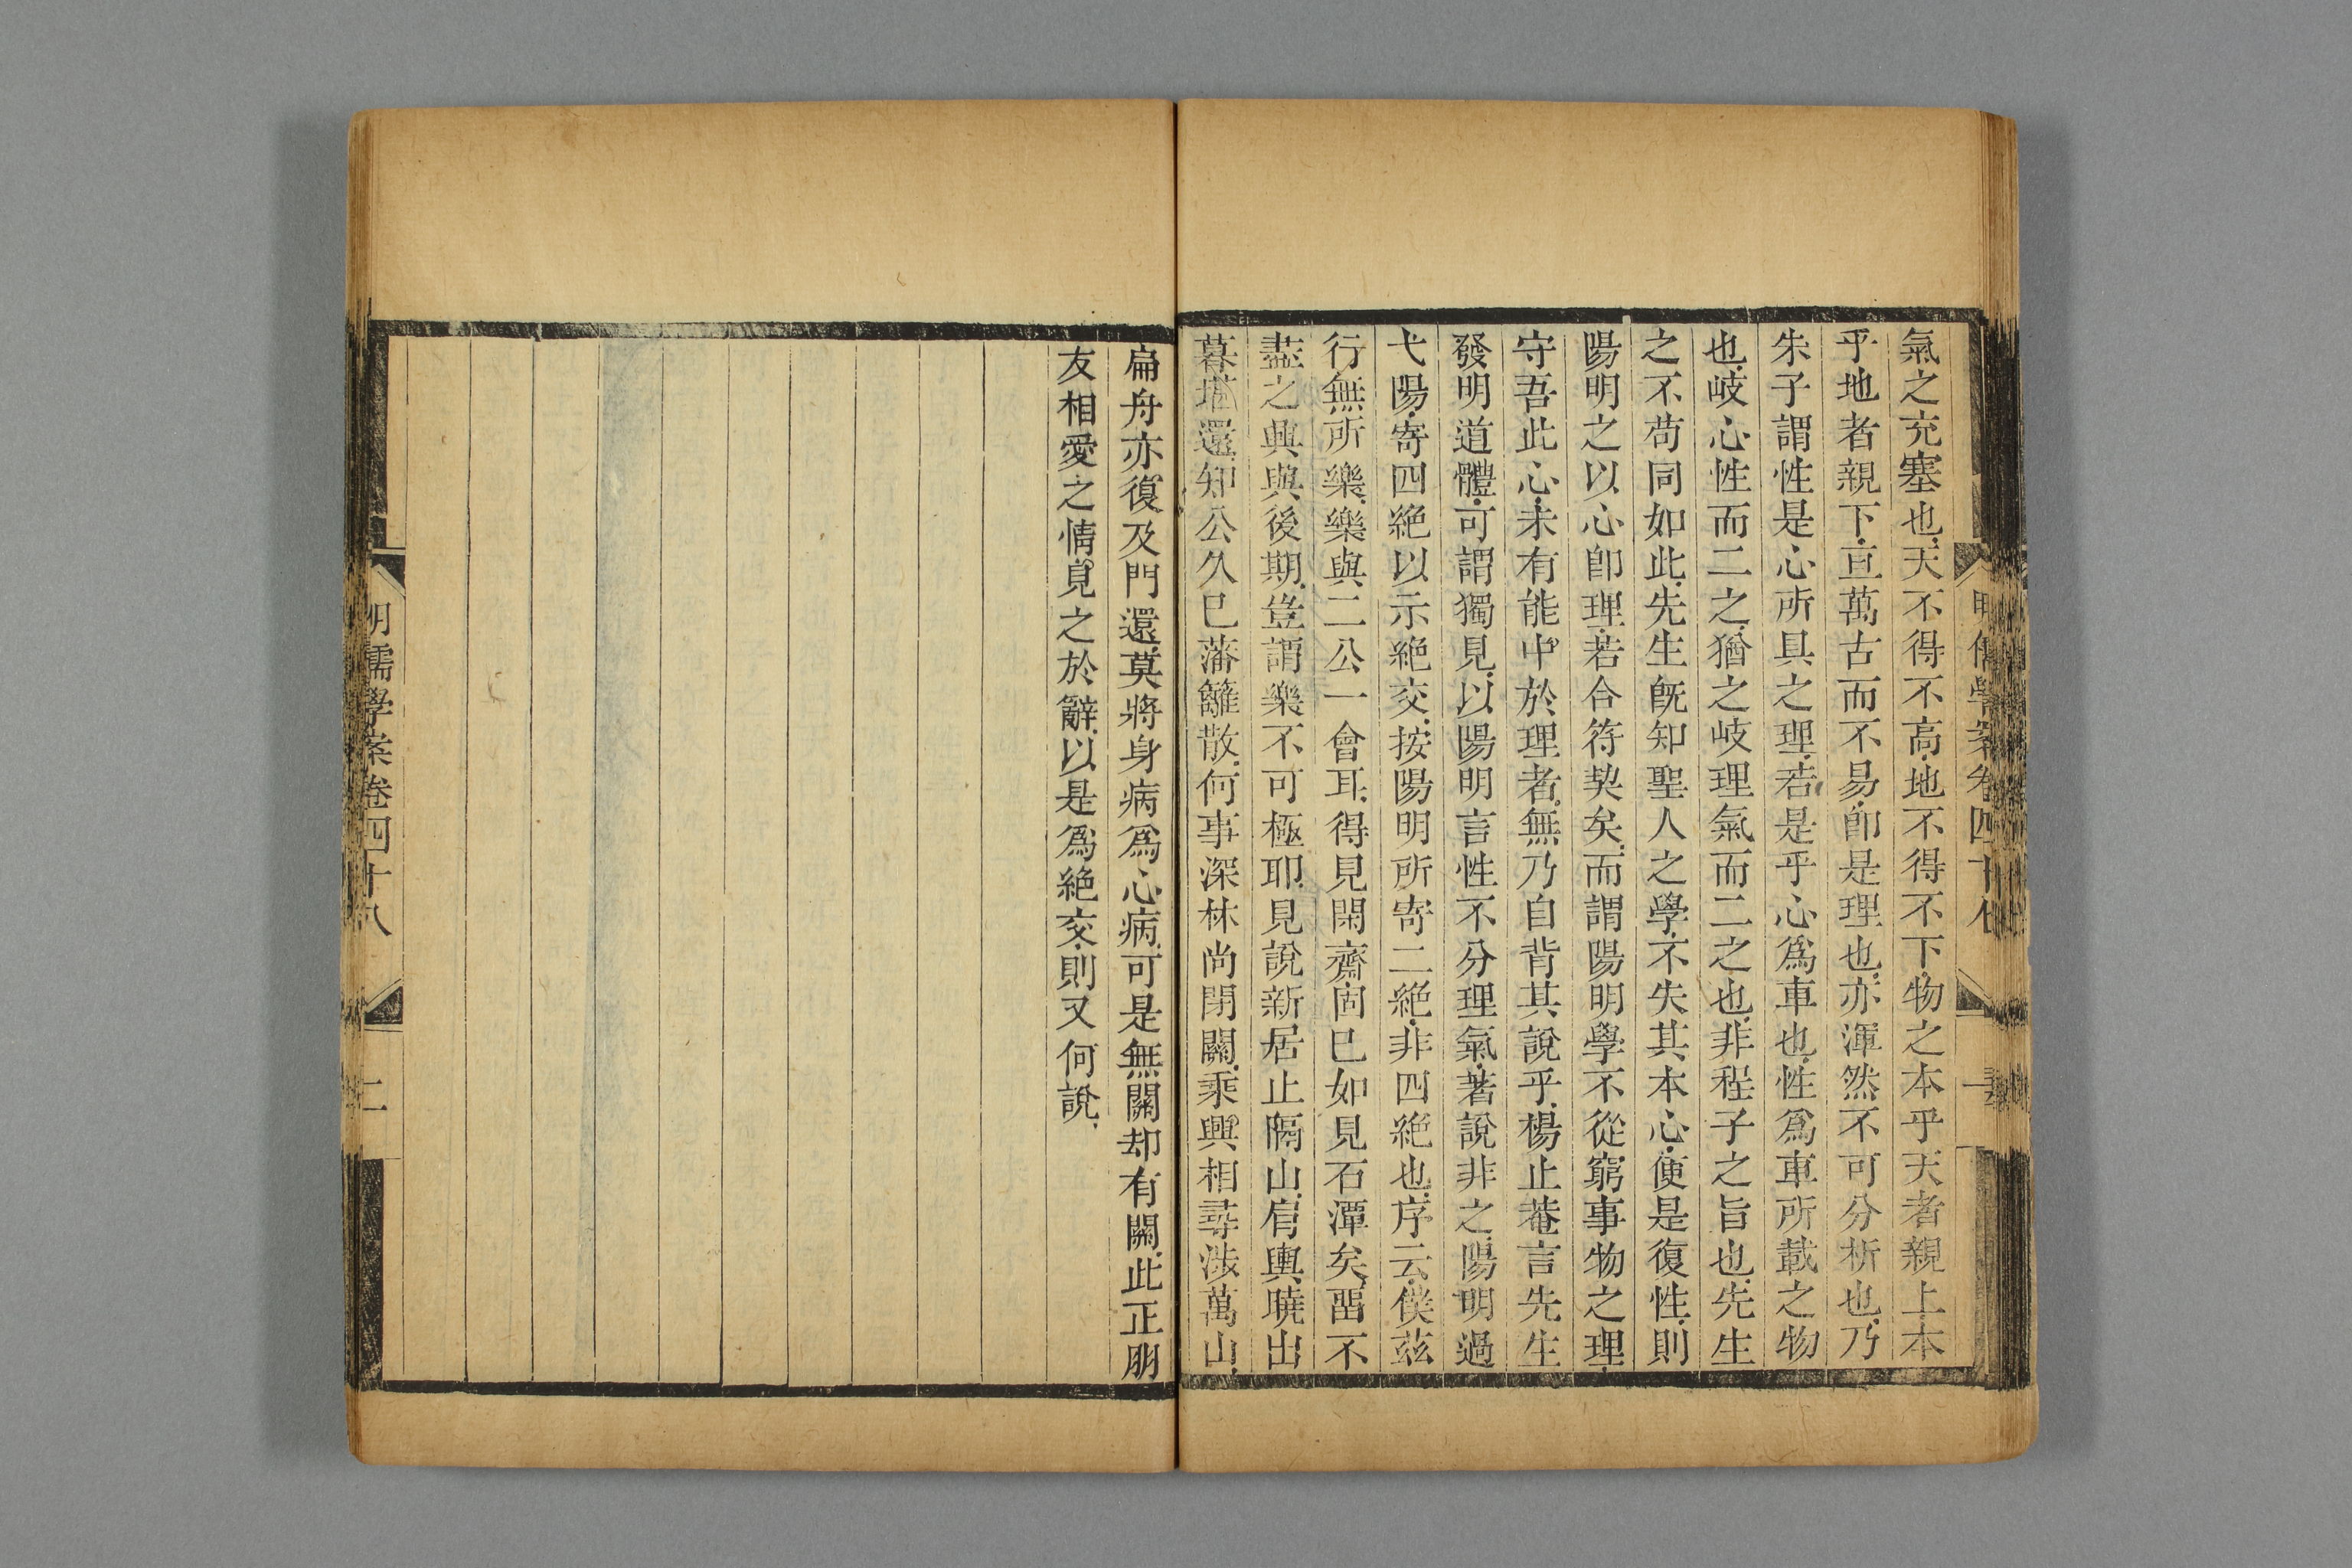 明儒學案卷四十八
氣之充塞也、天不得不高、地不得不下、物之本乎天者親上、本
乎地者親下、亘萬古而不易、卽是理也、亦渾然不可分析也、乃
朱子謂性是心所具之理、若是乎心爲車也、性爲車所載之物
也、岐心性而二之、猶之岐理氣而二之也、非程子之旨也、先生
之不苟同如此、先生旣知聖人之學、不失其本心、便是復性、則
陽明之以心卽理、若合符契矣、而謂陽明學不從窮事物之理、
守吾此心、未有能中於理者、無乃自背其說乎、楊止菴言先生
發明道體、可謂獨見、以陽明言性不分理氣、著說非之、陽明過
弋陽、寄四絶以示絶交、按陽明所寄二絶、非四絶也、序云、僕茲
行無所樂、樂與二公一會耳、得見閑齋、固已如見石潭矣、畱不
盡之興與後期、豈謂樂不可極耶、見說新居止隔山、肩輿曉出
暮堪還、知公久已藩籬散、何事深林尚閉關、乘興相尋涉萬山、
扁舟亦復及門還、莫將身病爲心病、可是無關却有關、此正朋
友相愛之情、見之於辭、以是爲絶交、則又何說、
明儒學案卷四十八
二